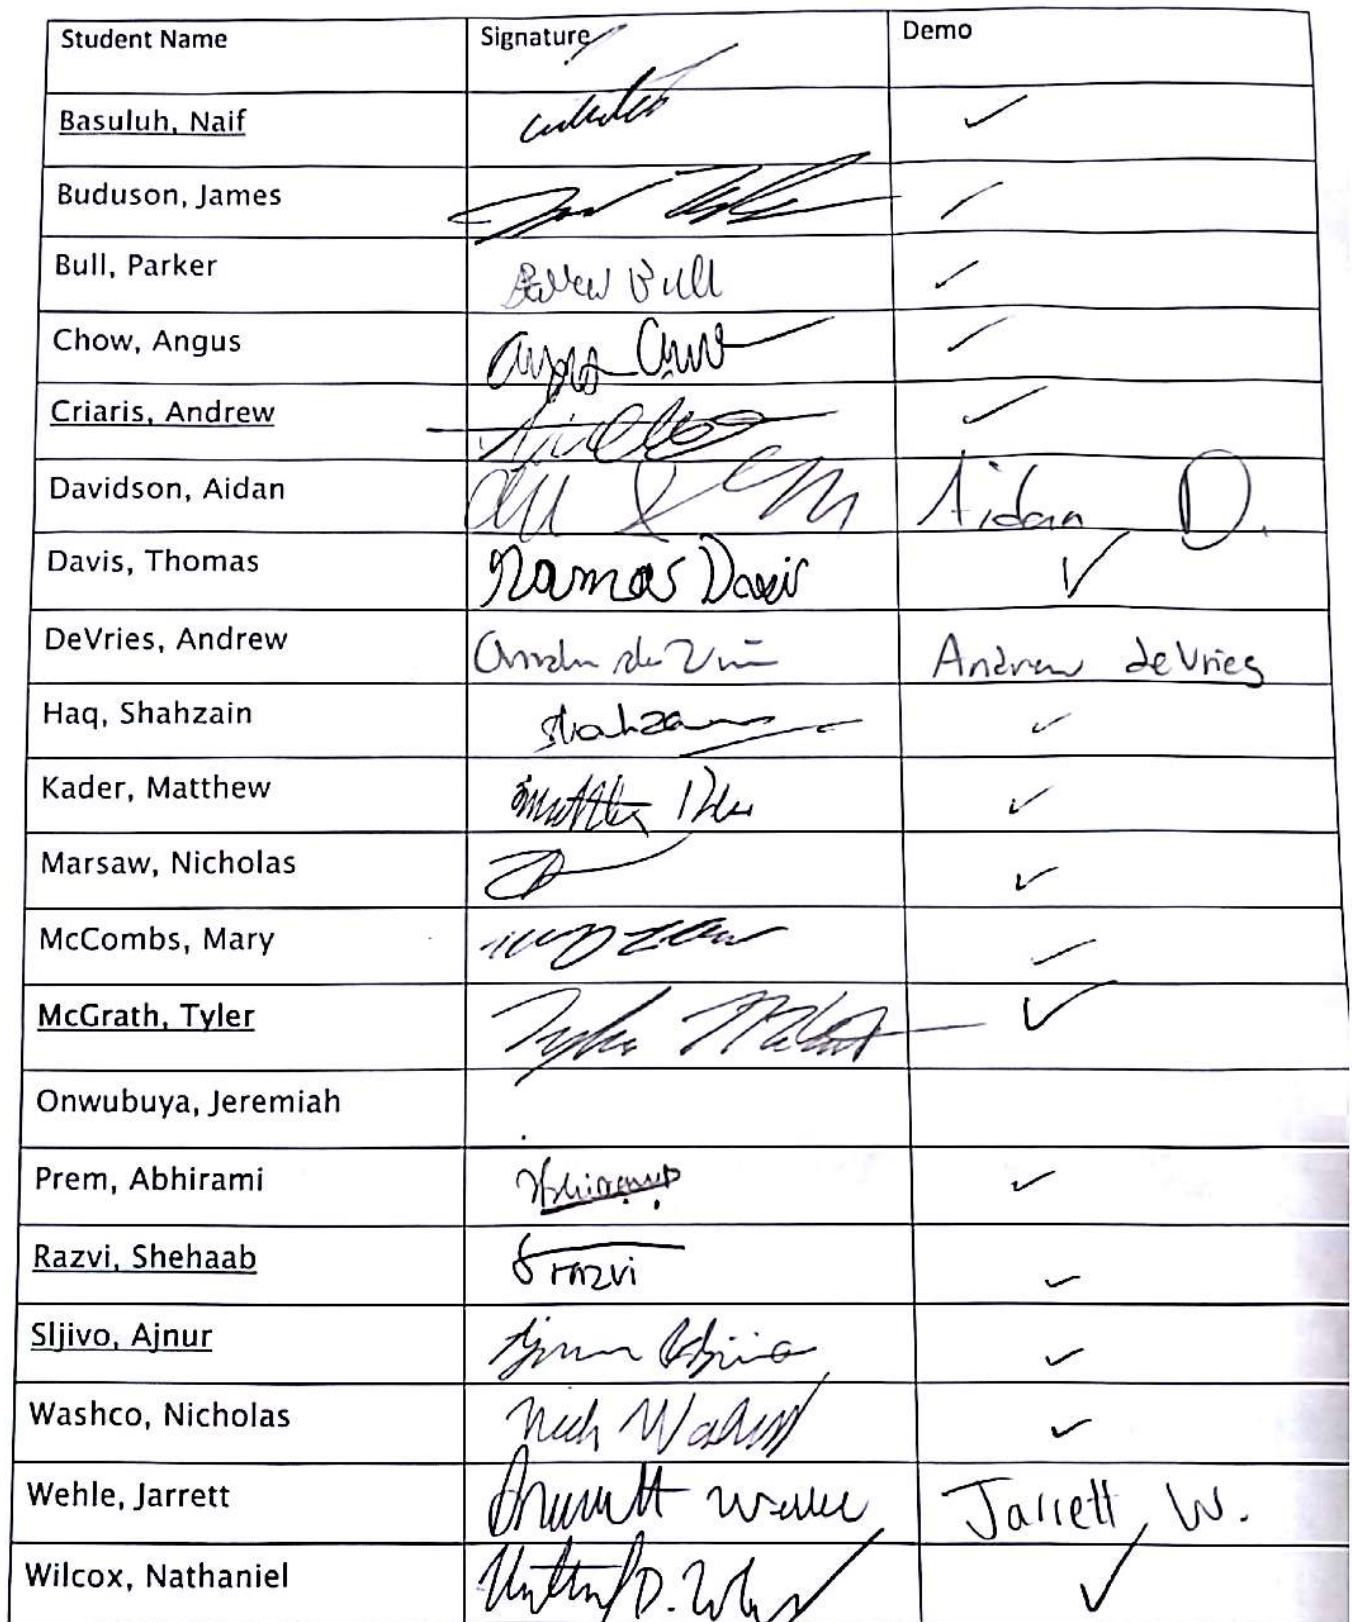 Student Name Signature Demo
Basuluh, Naif ✓
Buduson, James ✓
Bull, Parker Parker Bull ✓
Chow, Angus Angus Chow ✓
Criaris, Andrew ✓
Davidson, Aidan Aidan D.
Davis, Thomas Thomas Davis ✓
DeVries, Andrew Andrew deVries
Haq, Shahzain Shahzain ✓
Kader, Matthew ✓
Marsaw, Nicholas ✓
McCombs, Mary ✓
McGrath, Tyler Tyler McGrath ✓
Onwubuya, Jeremiah
Prem, Abhirami Abhirami ✓
Razvi, Shehaab S razvi ✓
Sljivo, Ajnur ✓
Washco, Nicholas Nick Washco ✓
Wehle, Jarrett Jarrett Wehle Jarrett W.
Wilcox, Nathaniel ✓